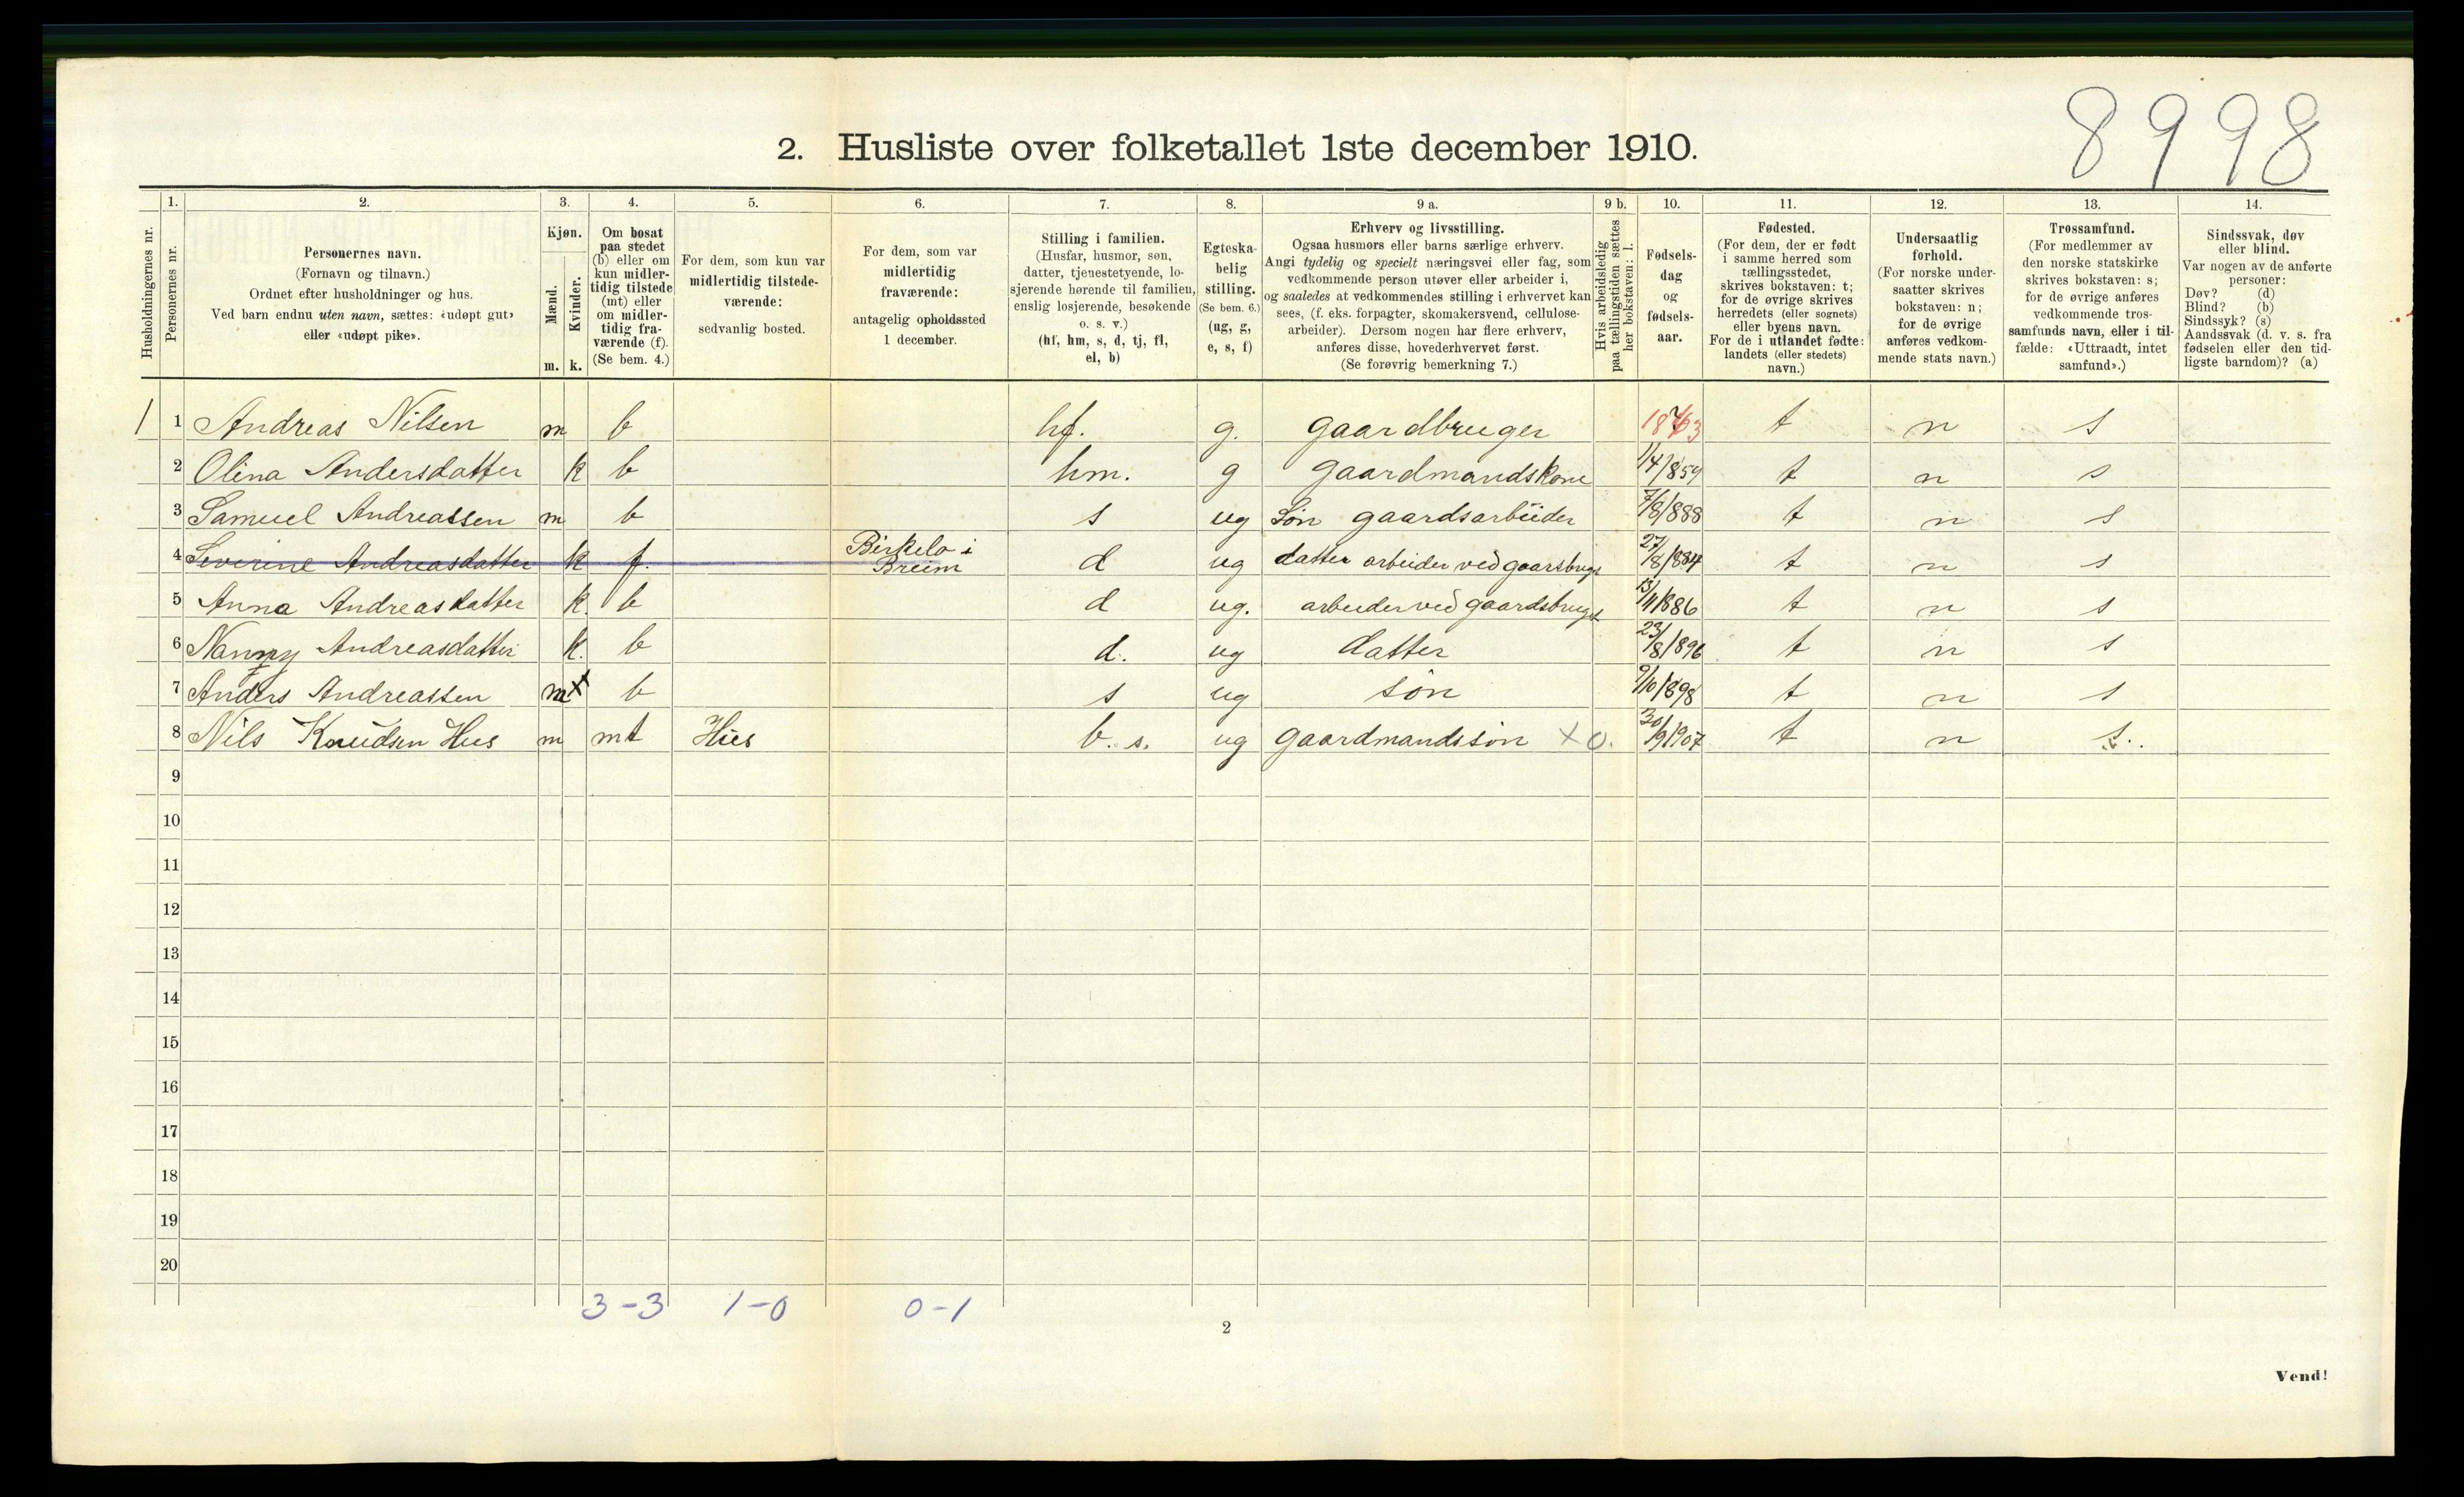 8998
2. Husliste over folketallet 1ste december 1910.
Husholdningernes nr.
1.
Personernes nr.
2.
Personernes navn.
(Fornavn og tilnavn.)
Ordnet efter husholdninger og hus.
Ved barn endnu uten navn, sættes: «udøpt gut»
eller «udøpt pike».
3.
Kjøn.
Mænd.
Kvinder.
m. k.
4.
Om bosat
paa stedet
(b) eller om
kun midler-
tidig tilstede
(mt) eller
om midler-
tidig fra-
værende (f).
(Se bem. 4.)
5.
For dem, som kun var
midlertidig tilstede-
værende:
sedvanlig bosted.
6.
For dem, som var
midlertidig
fraværende:
antagelig opholdssted
1 december.
7.
Stilling i familien.
(Husfar, husmor, søn,
datter, tjenestetyende, lo-
sjerende hørende til familien,
enslig losjerende, besøkende
o. s. v.)
(hf, hm, s, d, tj, fl,
el, b)
8.
Egteska-
belig
stilling.
(Se bem. 6.)
(ug, g,
e, s, f)
9 a.
Erhverv og livsstilling.
Ogsaa husmors eller barns særlige erhverv.
Angi tydelig og specielt næringsvei eller fag, som
vedkommende person utøver eller arbeider i,
og saaledes at vedkommendes stilling i erhvervet kan
sees, (f. eks. forpagter, skomakersvend, cellulose-
arbeider). Dersom nogen har flere erhverv,
anføres disse, hovederhvervet først.
(Se forøvrig bemerkning 7.)
9 b.
Hvis arbeidsledig
paa tællingstiden sættes
her bokstaven: l.
10.
Fødsels-
dag
og
fødsels-
aar.
11.
Fødested.
(For dem, der er født
i samme herred som
tællingsstedet,
skrives bokstaven: t;
for de øvrige skrives
herredets (eller sognets)
eller byens navn.
For de i utlandet fødte:
landets (eller stedets)
navn.)
12.
Undersaatlig
forhold.
(For norske under-
saatter skrives
bokstaven: n;
for de øvrige
anføres vedkom-
mende stats navn.)
13.
Trossamfund.
(For medlemmer av
den norske statskirke
skrives bokstaven: s;
for de øvrige anføres
vedkommende tros-
samfunds navn, eller i til-
fælde: «Uttraadt, intet
samfund».)
14.
Sindssvak, døv
eller blind.
Var nogen av de anførte
personer:
Døv? (d)
Blind? (b)
Sindssyk? (s)
Aandssvak (d. v. s. fra
fødselen eller den tid-
ligste barndom)? (a)
1 1 Andreas Nilsen m b hf. g. gaardbruger 1863 t n s
2 Olina Andersdatter k b hm. g gaardmandskone 1/4/859 t n s
3 Samuel Andreassen m b s ug Søn gaardsarbeider 7/8/888 t n s
4 Severine Andreasdatter k f. Birkelo i Breim d ug datter arbeider ved gaarsbruget 27/8/884 t n s
5 Anna Andreasdatter k. b d ug. arbeider ved gaardsbruget 13/11/886 t n s
6 Nanny Andreasdatter k. b d. ug datter 23/8/896 t n s
7 Anders Andreassen m x b s ug søn 9/10/898 t n s
8 Nils Knudsen Hus m mt Hus b. s. ug gaardmandssøn x o. 30/9/1907 t n s.
9
10
11
12
13
14
15
16
17
18
19
20
3-3 1-0 0-1
2
Vend!